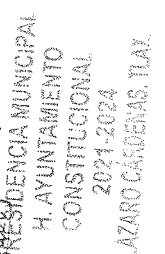 PRESIDENCIA MUNICIPAL
H. AYUNTAMIENTO
CONSTITUCIONAL
2021-2024
LÁZARO CÁRDENAS, TLAX.